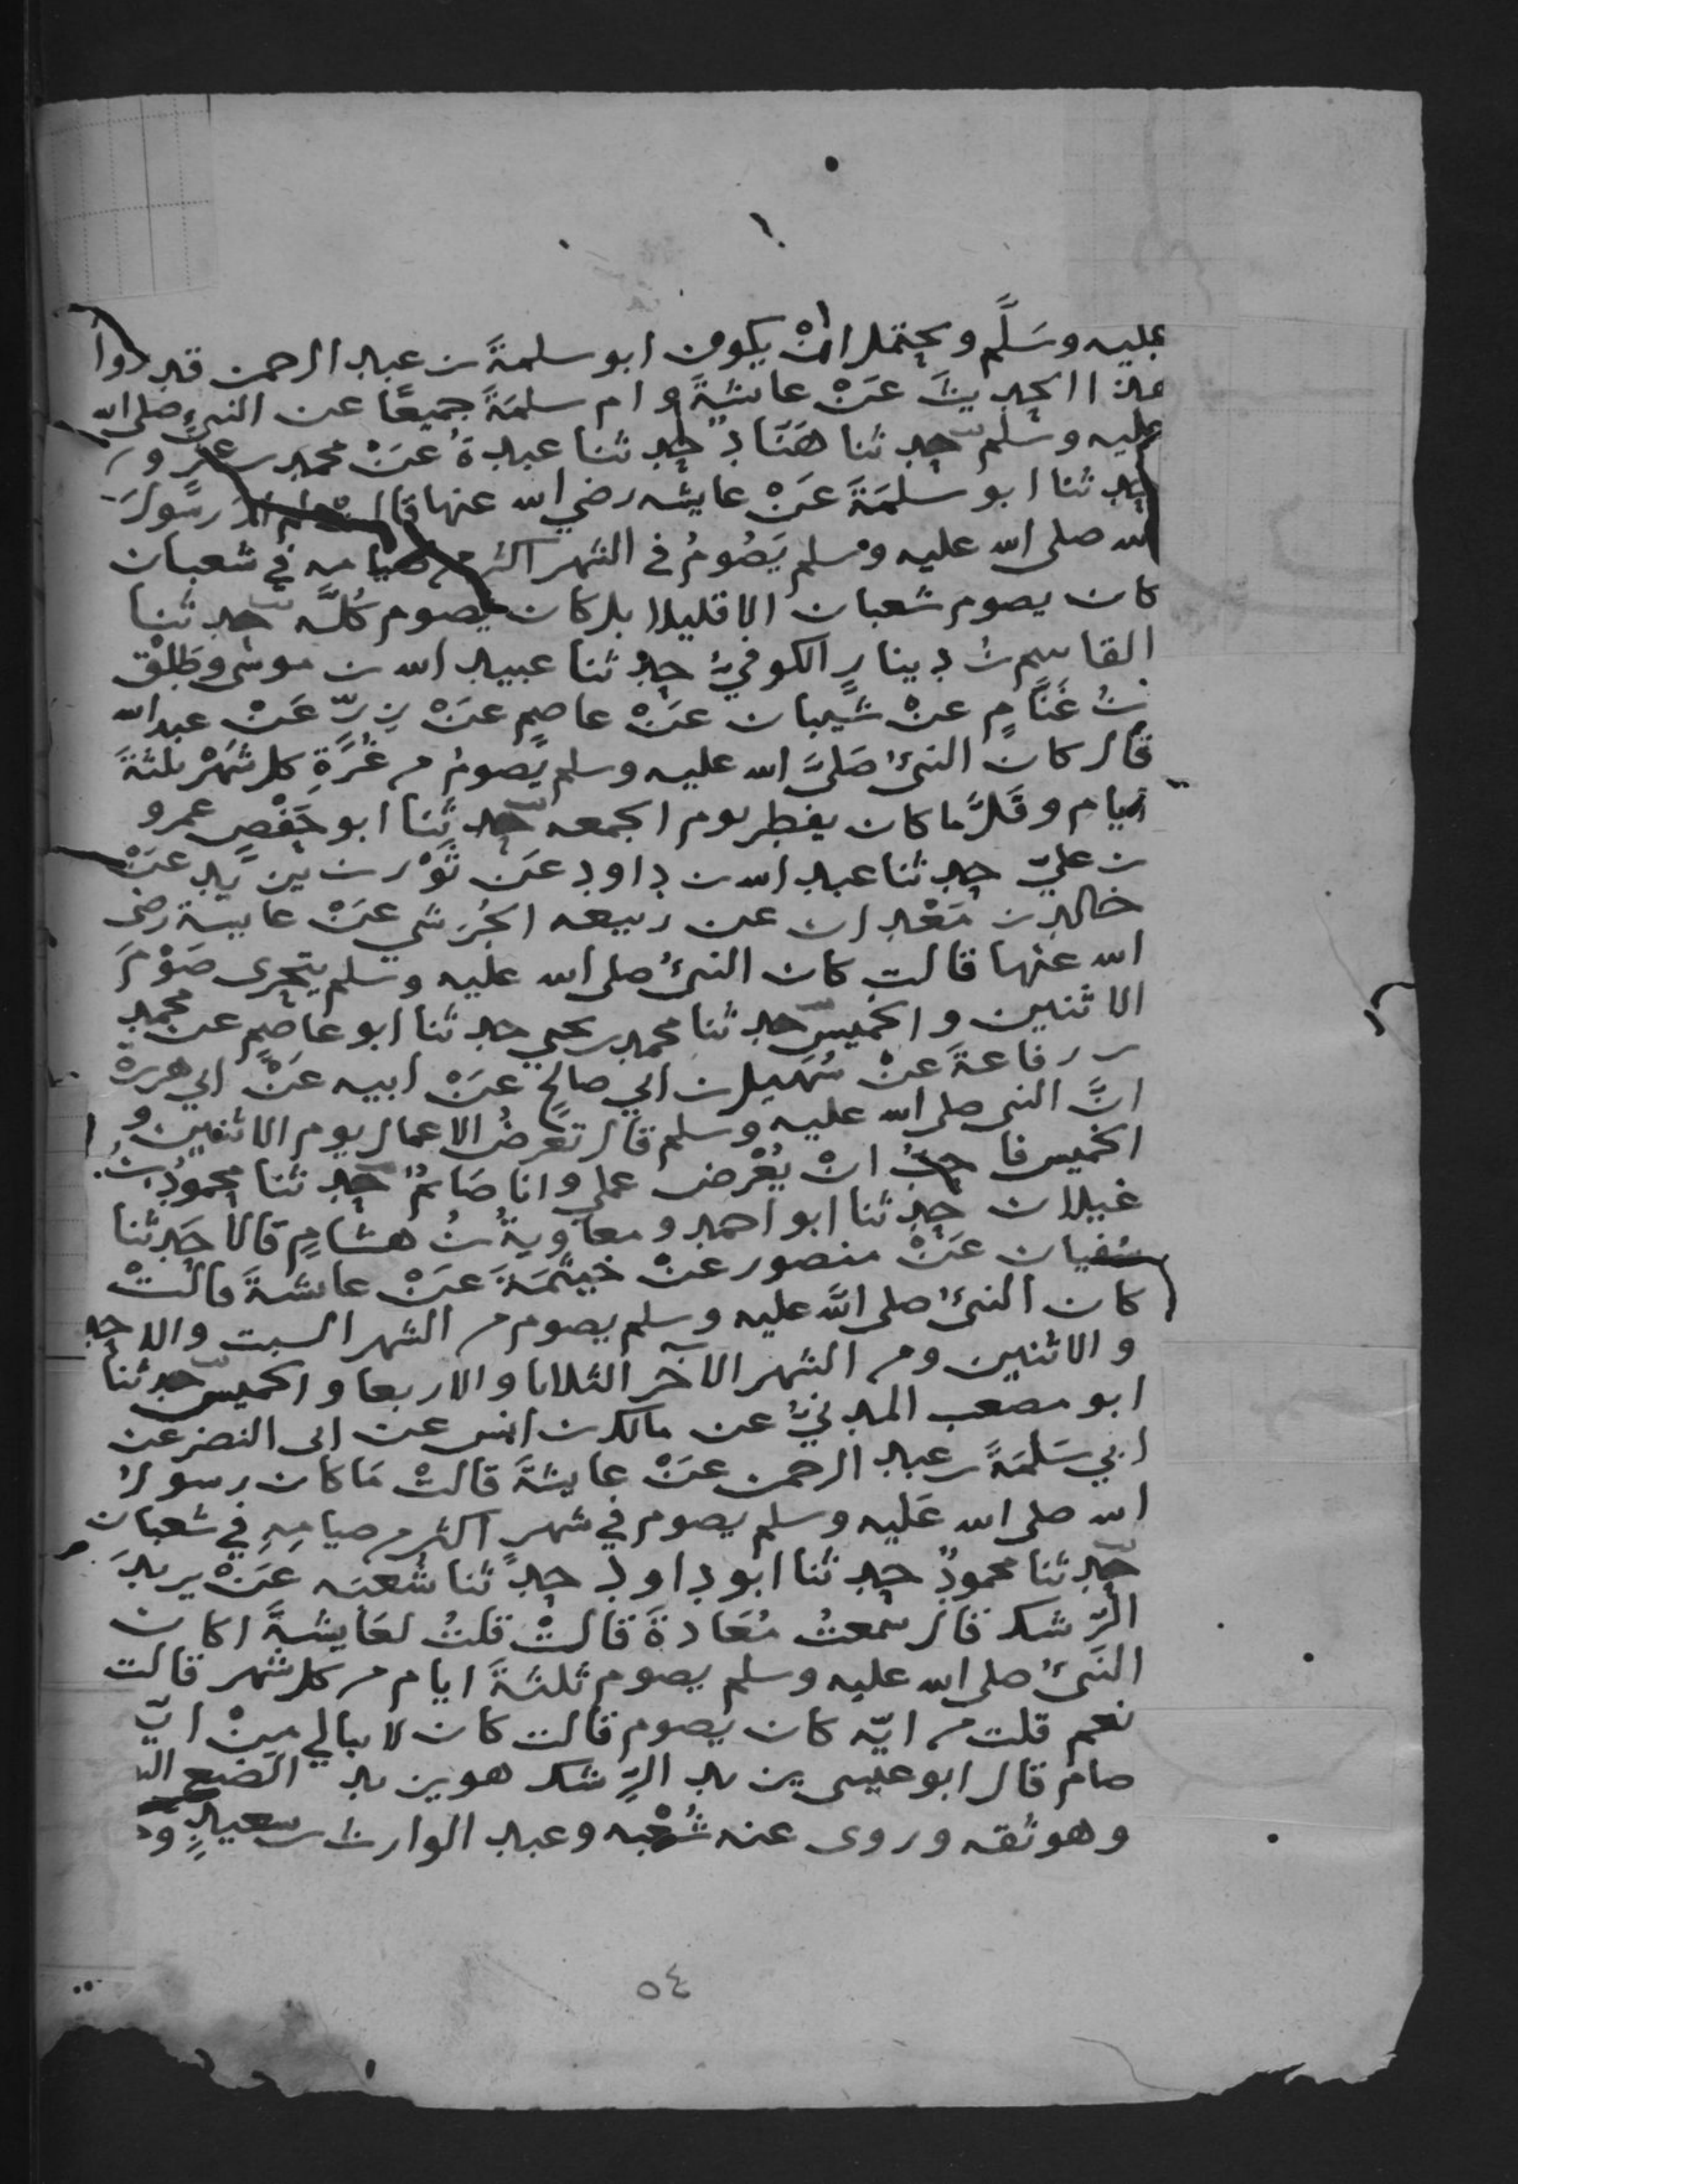 عليه وسَلَّم ويحتمل انْ يكون ابو سلمةَ بن عبد الرحمن قد روا
هذا الحديثَ عَنْ عايشةَ وام سلمَةَ جميعًا عن النبي صلى الله
عليه وسلم حدثنا هَنَّادٌ حدثنا عبدةُ عَنْ محمد بن عمرو
حدثنا ابو سلمَةَ عَنْ عايشه رضي الله عنها قالت لم ار رسُولَ
الله صلى الله عليه وسلم يَصُومُ في الشهر اكثر من صيامه في شعبان
كان يصوم شعبان الا قليلا بل كان يصوم كُلَّه حدثنا
القاسِم بنُ دينارٍ الكوفيُّ حدثنا عبيد الله بن موسى وطَلْق
بنُ غَنَّامٍ عنْ شَيبان عَنْ عاصمٍ عَنْ زِرّ عَنْ عبد الله
قال كان النبيُّ صَلىَّ الله عليه وسلم يصومُ من غُرَّةِ كل شَهْر ثلثةَ
ايام وقَلَّما كان يفطر يوم الجمعه حدثنا ابو حَفْصٍ عمرو
بن عليّ حدثنا عبد الله بن داود عَن ثَوْر بن يزيد عَنْ
خالد بن مَعْدان عن ربيعه الجُرَشي عَنْ عايشة رضى
الله عنها قالت كان النبيُّ صلى الله عليه وسلم يتحرى صَوْمَ
الاثنين والخميس حدثنا محمد بن يحيي حدثنا ابو عاصِمٍ عن محمد
بن رفاعةَ عنْ سُهَيل بن ابي صالحٍ عَنْ ابيه عَنْ ابي هريرة
انَّ النبى صلى الله عليه وسلم قال تعرضُ الاعمال يوم الاثنين و
الخميس فاحبُّ انْ يُعْرض عملي وانا صَايمٌ حدثنا محمودُ بنُ
غيلان حدثنا ابو احمد ومعاويةُ بنُ هشامٍ قالا حَدثنا
سفيان عَنْ منصور عنْ خيثمَةَ عَنْ عايشةَ قالتْ
كان النبيُّ صلى اللَّه عليه وسلم يصوم من الشهر السبت والاحد
والاثنين ومن الشهر الآخر الثلاثا والاربعا والخميس حدثنا
ابو مصعب المدنيُّ عن مالك بن انس عن ابى النضر عن
ابي سَلمَةَ بن عبد الرحمن عَنْ عايشةَ قالتْ مَا كان رسولُ
الله صلى الله عَليه وسلم يصوم في شهرٍ اكثر من صيامِهِ في شعبان
حدثنا محمودٌ حدثنا ابو داود حدثنا شُعبَه عَنْ يزيدَ
الرِّشك قال سمعتُ مُعَاذةَ قالتْ قلتُ لعَايشةَ اكان
النَبيُّ صلى الله عليه وسلم يصوم ثلثةَ ايام من كل شهر قالت
نعم قلت من ايّه كان يصوم قالت كان لا يبالي مِنْ ايّ
صام قال ابو عيسى يزيد الرِّشك هو يزيد الضبع
وهو ثقه وروى عنه شُعْبه وعبد الوارث بن سعيدٍ
٥٤